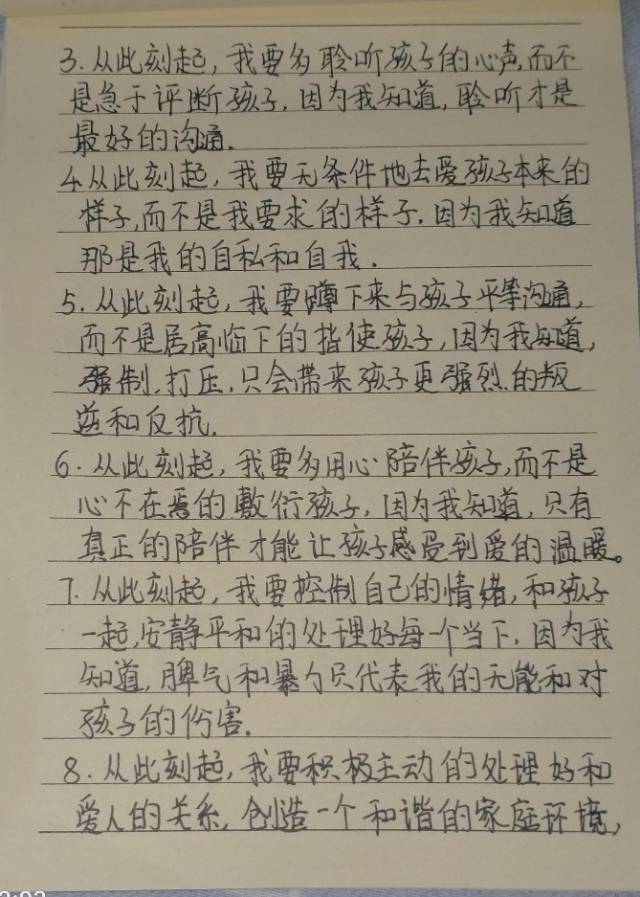 3.从此刻起,我要多聆听孩子的心声,而不
是急于评断孩子,因为我知道,聆听才是
最好的沟通.
4从此刻起,我要无条件地去爱孩子本来的
样子,而不是我要求的样子.因为我知道
那是我的自私和自我.
5.从此刻起,我要蹲下来与孩子平等沟通,
而不是居高临下的指使孩子,因为我知道,
强制,打压,只会带来孩子更强烈的叛
逆和反抗.
6.从此刻起,我要多用心陪伴孩子,而不是
心不在焉的敷衍孩子,因为我知道,只有
真正的陪伴才能让孩子感受到爱的温暖。
7.从此刻起,我要控制自己的情绪,和孩子
一起,安静平和的处理好每一个当下,因为我
知道,脾气和暴力只代表我的无能和对
孩子的伤害.
8.从此刻起,我要积极主动的处理好和
爱人的关系,创造一个和谐的家庭环境,